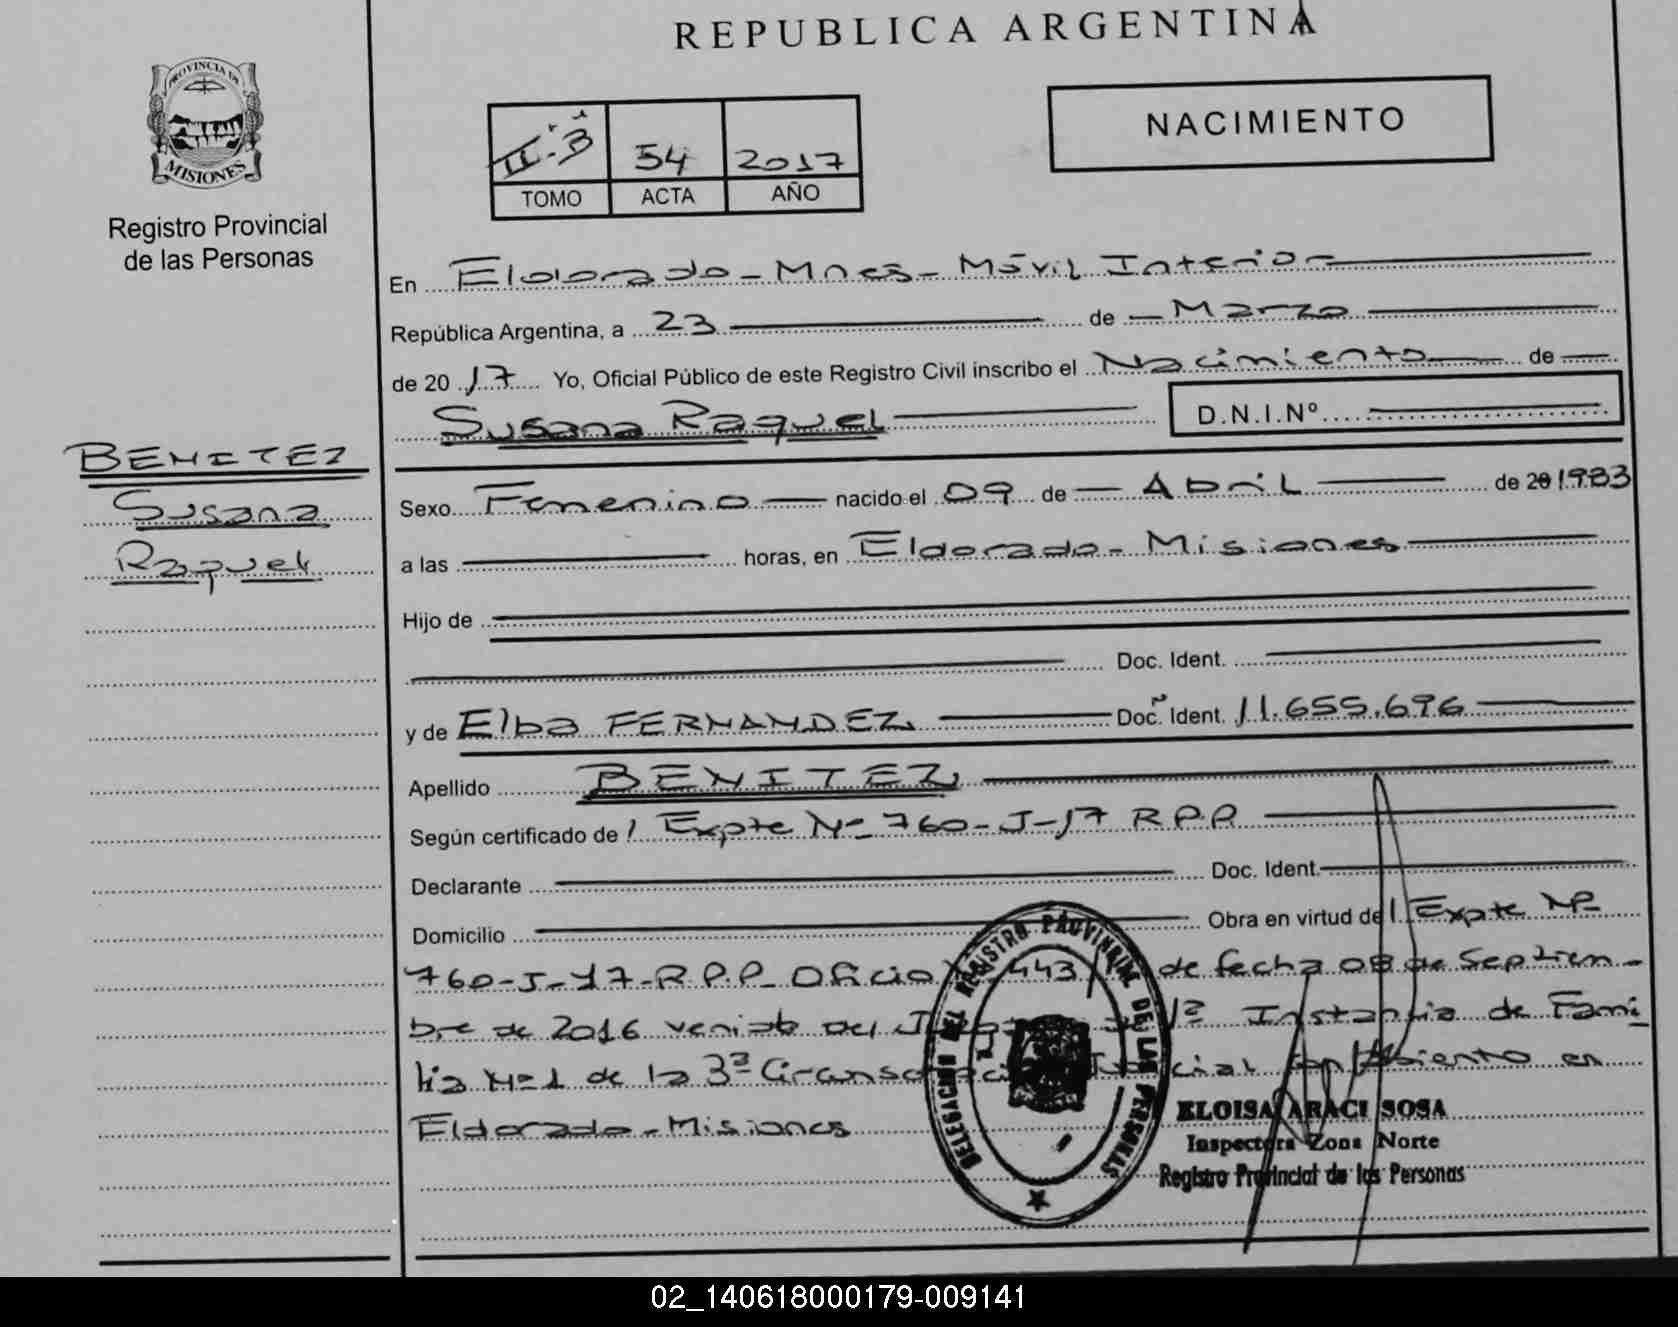 REPUBLICA ARGENTINA
PROVINCIA DE
MISIONES
Registro Provincial
de las Personas
II-3 54 2017
TOMO ACTA AÑO
NACIMIENTO
En Eldorado - Mnes - Móvil Interior
República Argentina, a 23 de Marzo
de 2017 Yo, Oficial Público de este Registro Civil inscribo el Nacimiento de
Susana Raquel D.N.I.Nº
BENITEZ
Susana
Raquel
Sexo Femenino nacido el 09 de Abril de 20 1983
a las horas, en Eldorado - Misiones
Hijo de
Doc. Ident.
y de Elba FERNANDEZ Doc. Ident. 11.655.696
Apellido BENITEZ
Según certificado de / Expte Nº 760-J-17 R.P.P
Declarante Doc. Ident.
Domicilio Obra en virtud de / Expte Nº
760-J-17-R.P.P- Oficio 443/ de fecha 08 de Septiem-
bre de 2016 venido del 1ª Instancia de Fami
lia Nº 1 de la 3ª con Asiento en
Eldorado - Misiones
DELEGACION DEL REGISTRO PROVINCIAL DE LAS PERSONAS
ELOISA ARACI SOSA
Inspectora Zona Norte
Registro Provincial de las Personas
02_140618000179-009141